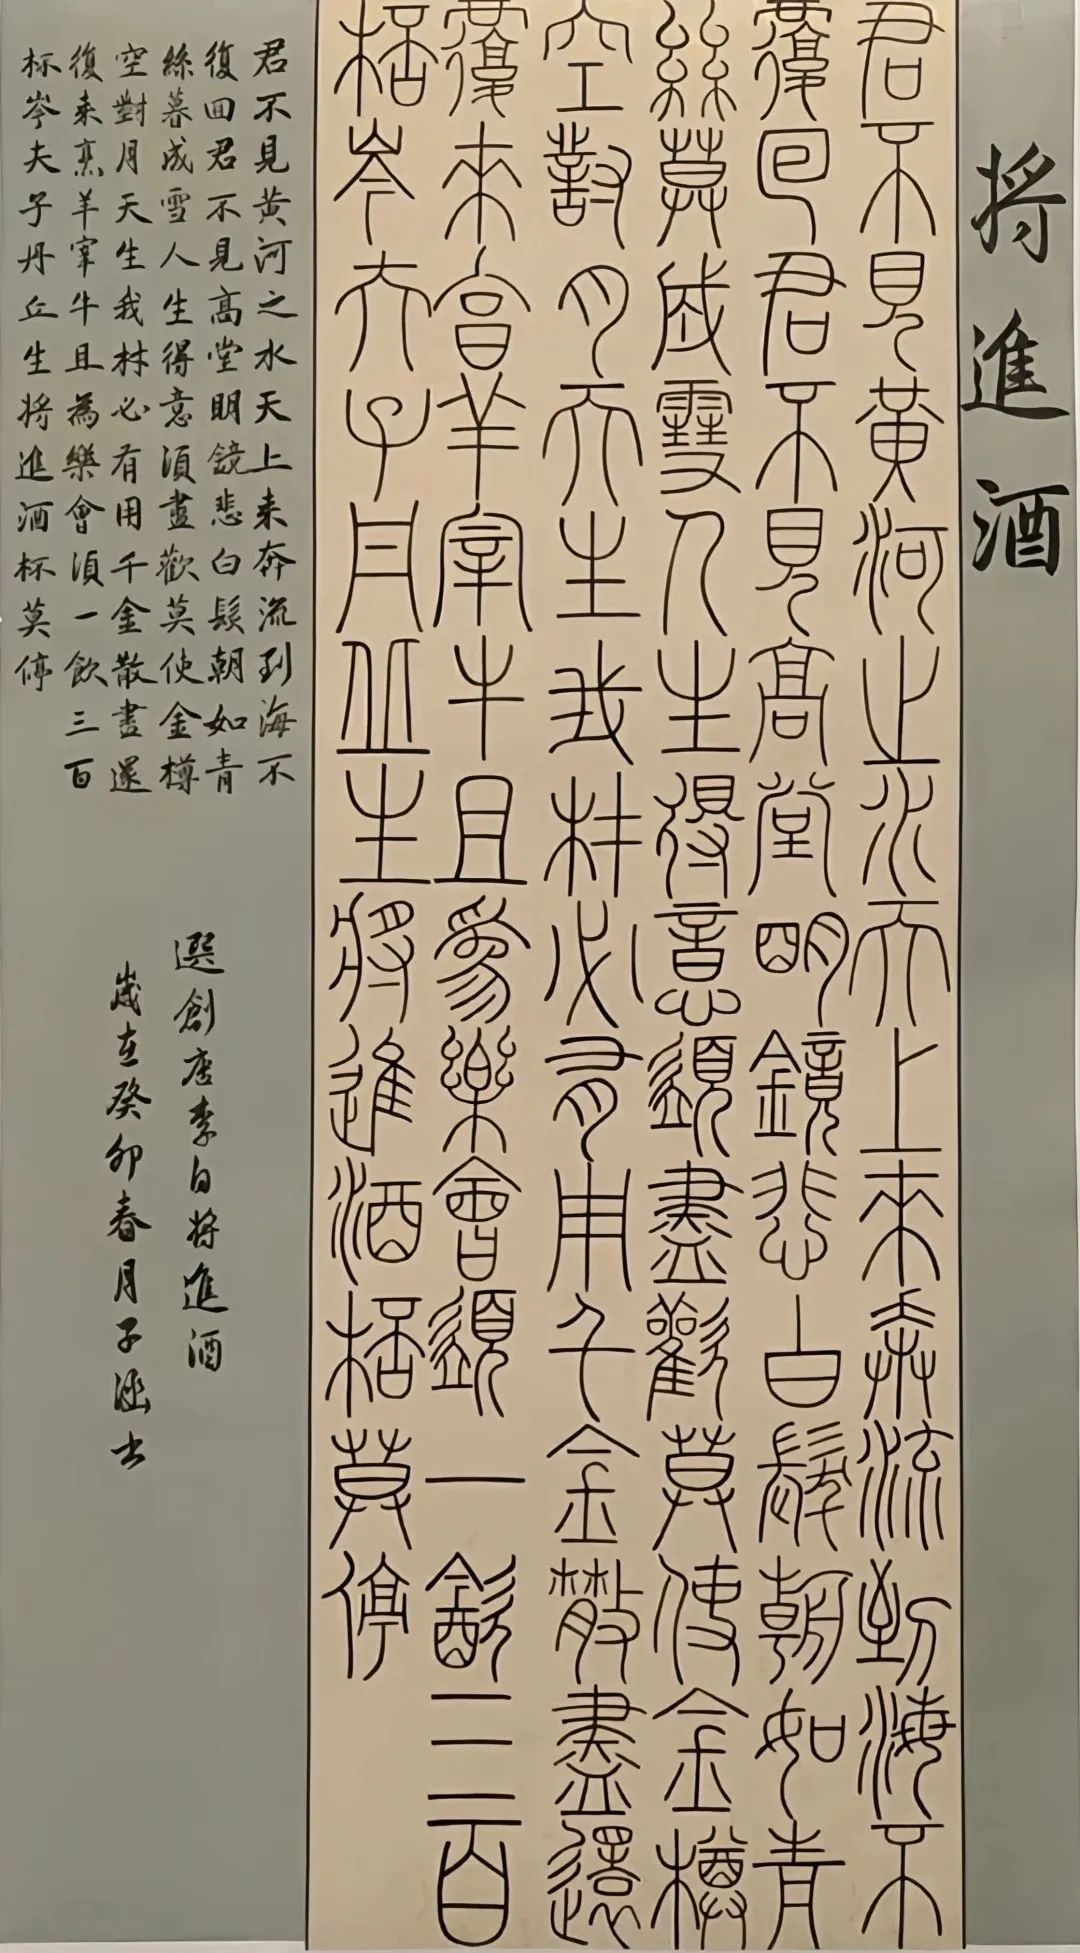 将進酒
君不見黃河之水天上來奔流到海不
復回君不見高堂明鏡悲白髮朝如青
絲莫成雪人生得意須盡歡莫使金樽
空對月天生我材必有用千金散盡還
復來亯羊宰牛且為樂會須一飲三百
桮岑夫子丹丘生將進酒桮莫停
君不見黄河之水天上来奔流到海不
復回君不見高堂明鏡悲白髮朝如青
絲暮成雪人生得意須盡歡莫使金樽
空對月天生我材必有用千金散盡還
復来烹羊宰牛且為樂會須一飲三百
杯岑夫子丹丘生将進酒杯莫停
選創唐李白将進酒
歲在癸卯春月子涵书